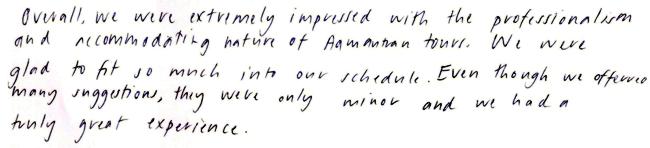 Overall, we were extremely impressed with the professionalism
and accommodating nature of Aamantran tours. We were
glad to fit so much into our schedule. Even though we offered
many suggestions, they were only minor and we had a
truly great experience.